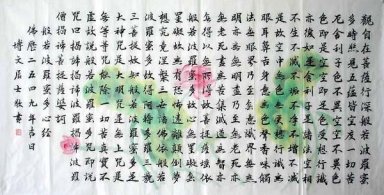 觀自在菩薩行深般若波羅蜜
多時照見五蘊皆空度一切苦
厄舍利子色不異空空不異色
色即是空空即是色受想行識
亦復如是舍利子是諸法空相
不生不滅不垢不淨不增不減
是故空中無色無受想行識無
眼耳鼻舌身意無色聲香味觸
法無眼界乃至無意識界無無
明亦無無明盡乃至無老死亦
無老死盡無苦集滅道無智亦
無得以無所得故菩提薩埵依
般若波羅蜜多故心無罣礙無
罣礙故無有恐怖遠離顛倒夢
想究竟涅槃三世諸佛依般若
波羅蜜多故得阿耨多羅三藐
三菩提故知般若波羅蜜多是
大神咒是大明咒是無上咒是
無等等咒能除一切苦真實不
虛故說般若波羅蜜多咒即說
咒曰揭諦揭諦波羅揭諦波羅
僧揭諦菩提薩婆訶
般若波羅蜜多心經
佛曆二五四九年吉日
博文居士敬書